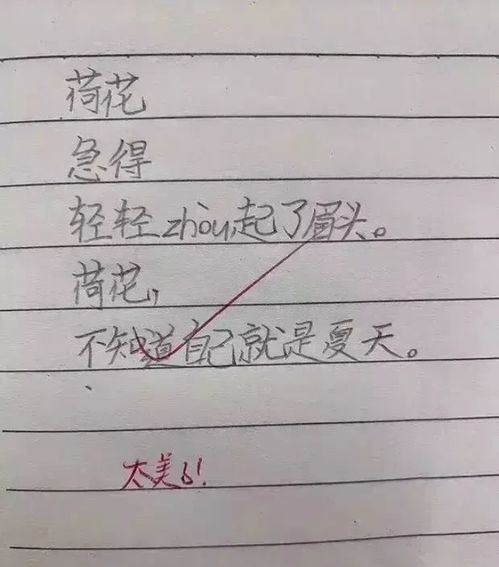 荷花
急得
轻轻zhou起了眉头。
荷花,
不知道自己就是夏天。
太美了!